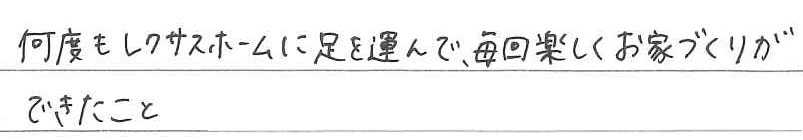 何度もレクサスホームに足を運んで、毎回楽しくお家づくりが
できたこと